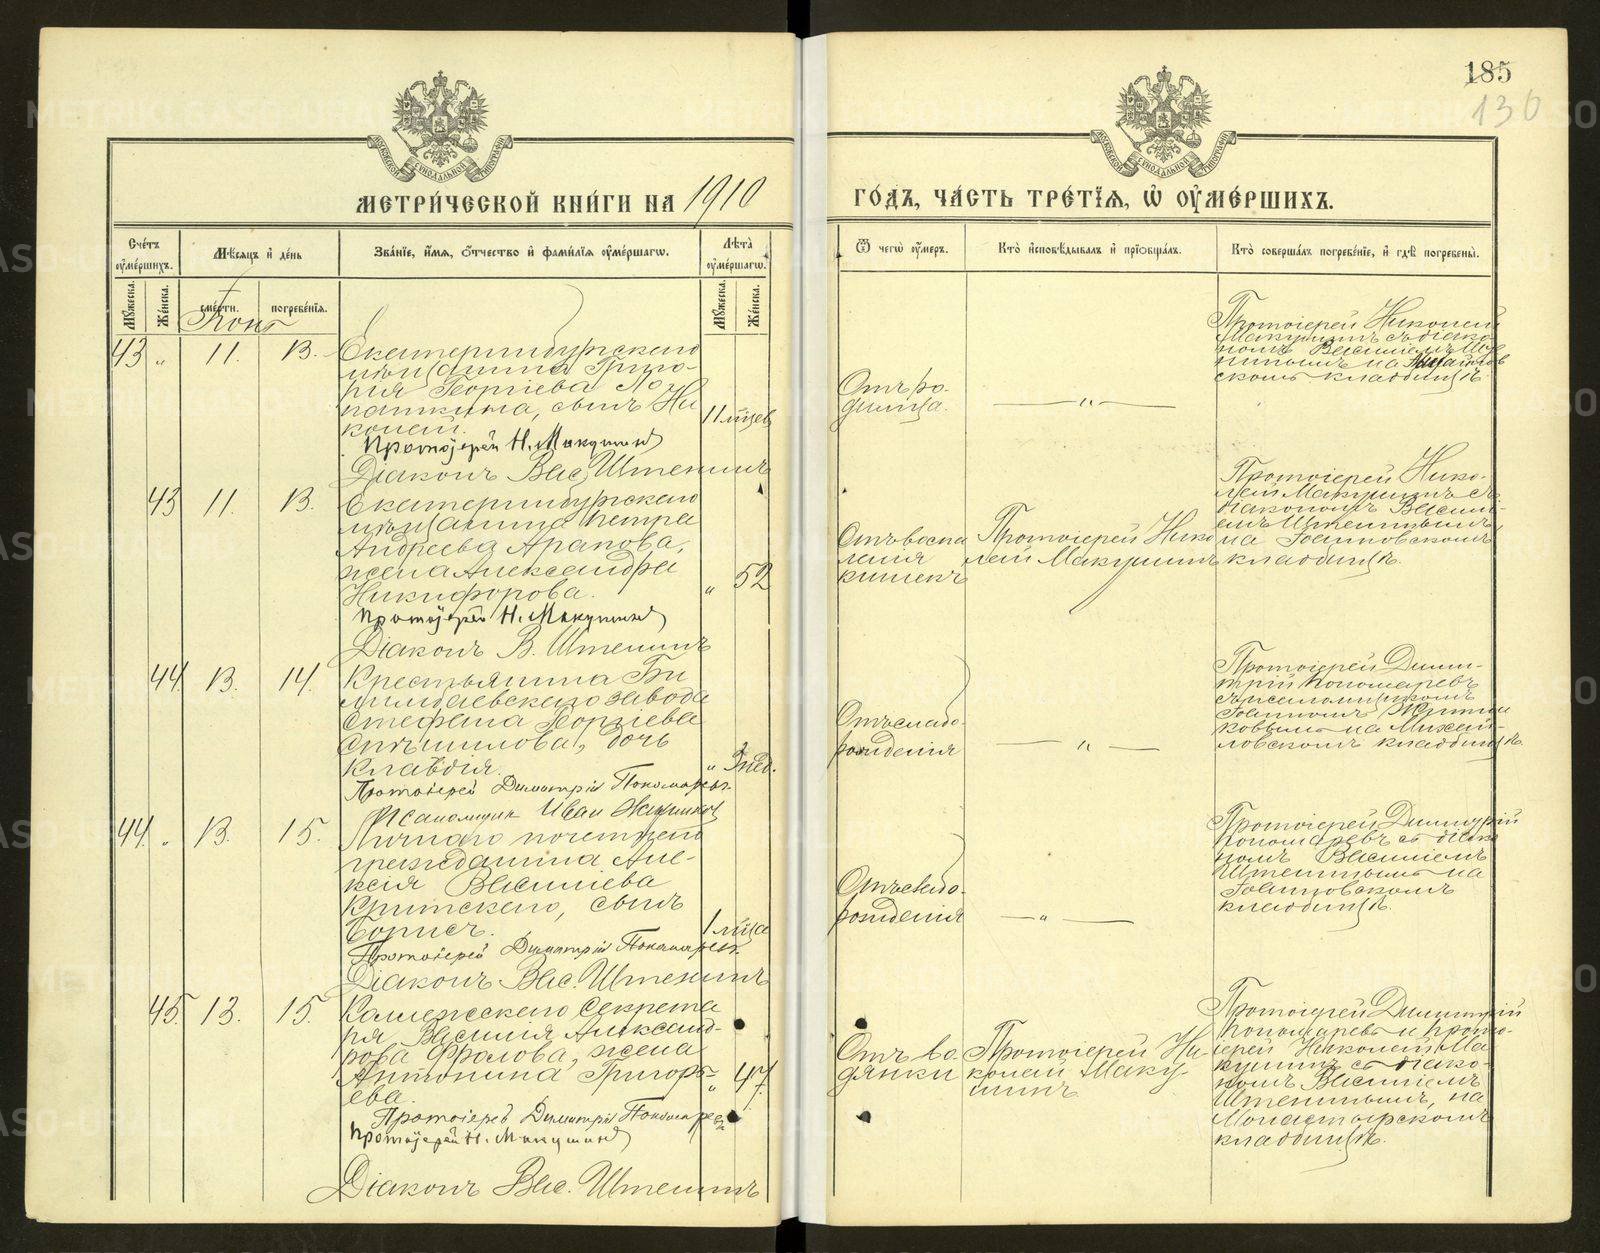 185
130
МЕТРИ́ЧЕСКОЙ КНИ́ГИ НА 1910
ГО́ДЪ, ЧА́СТЬ ТРЕ́ТІЯ, Ѡ҆ ОУ҆МЕ́РШИХЪ.
Сче́тъ оу҆ме́ршихъ.
Мѣ́сяцъ и҆ де́нь
Зва́ніе, и҆́мя, ѻ҆́тчество и҆ фами́лія оу҆ме́ршагѡ.
Лѣ́та оу҆ме́ршагѡ.
Ѿ чегѡ̀ оу҆́меръ.
Кто̀ и҆сповѣ́дывалъ и҆ прїѻбща́лъ.
Кто̀ соверша́лъ погребе́ніе, и҆ гдѣ̀ погребены̀.
Му́жеска.
Же́нска.
сме́рти.
погребе́нія.
Му́жеска.
Же́нска.
43 „ 11. 13.
Екатеринбургскаго
мѣщанина Григо-
рія Георгіева Ло
паткина, сынъ Ни
колай.
11 мѣсяцев
Протоіерей Н. Макушинъ
Діаконъ Вас. Штенинъ
Отъ ро-
димца.
— „ —
Протоіерей Николай
Макушинъ съ діако-
номъ Василіемъ Ште
скомъ кладбищѣ.
43 11. 13.
Екатеринбургскаго
мѣщанина Петра
Андреева Арапова,
жена Александра
Никифорова.
„ 52
Протоіерей Н. Макушинъ
Діаконъ В. Штенинъ
Отъ воспа
ленія
кишекъ
Протоіерей Нико
лай Макушинъ
Протоіерей Нико-
лай Макушинъ съ
діакономъ Василі-
емъ Штенинымъ
на Іоанновскомъ
кладбищѣ.
44 13. 14.
Крестьянина Би
лимбаевскаго завода
Стефана Георгіева
Спѣшилова, дочь
Клавдія.
„ 3 нед.
Протоіерей Димитрій Пономаревъ
Отъ слабо-
рожденія
— „ —
Протоіерей Дими-
трій Пономаревъ
съ псаломщикомъ
Іоанномъ
ковымъ на Михай-
ловскомъ кладбищѣ.
44 „ 13. 15.
Личнаго почетнаго
гражданина Але-
ксія Василіева
Критскаго, сынъ
Борисъ.
1 мѣсяца
Протоіерей Димитрій Пономаревъ
Діаконъ Вас. Штенинъ
Отъ слабо-
рожденія
— „ —
Протоіерей Димитрій
Пономаревъ съ діако
номъ Василіемъ
Штенинымъ на
Іоанновскомъ
кладбищѣ.
45. 13. 15.
Коллежскаго Секрета
ря Василія Александ-
рова Фролова, жена
Антонина Григорь-
ева.
„ 47
Протоіерей Димитрій Пономаревъ
Протоіерей Н. Макушинъ
Діаконъ Вас. Штенинъ
Отъ во-
дянки
Протоіерей Ни
колай Маку-
шинъ
Протоіерей Димитрій
Пономаревъ и прото-
іерей Николай Ма
кушинъ съ діако-
номъ Василіемъ
Штенинымъ, на
Монастырскомъ
кладбищѣ.